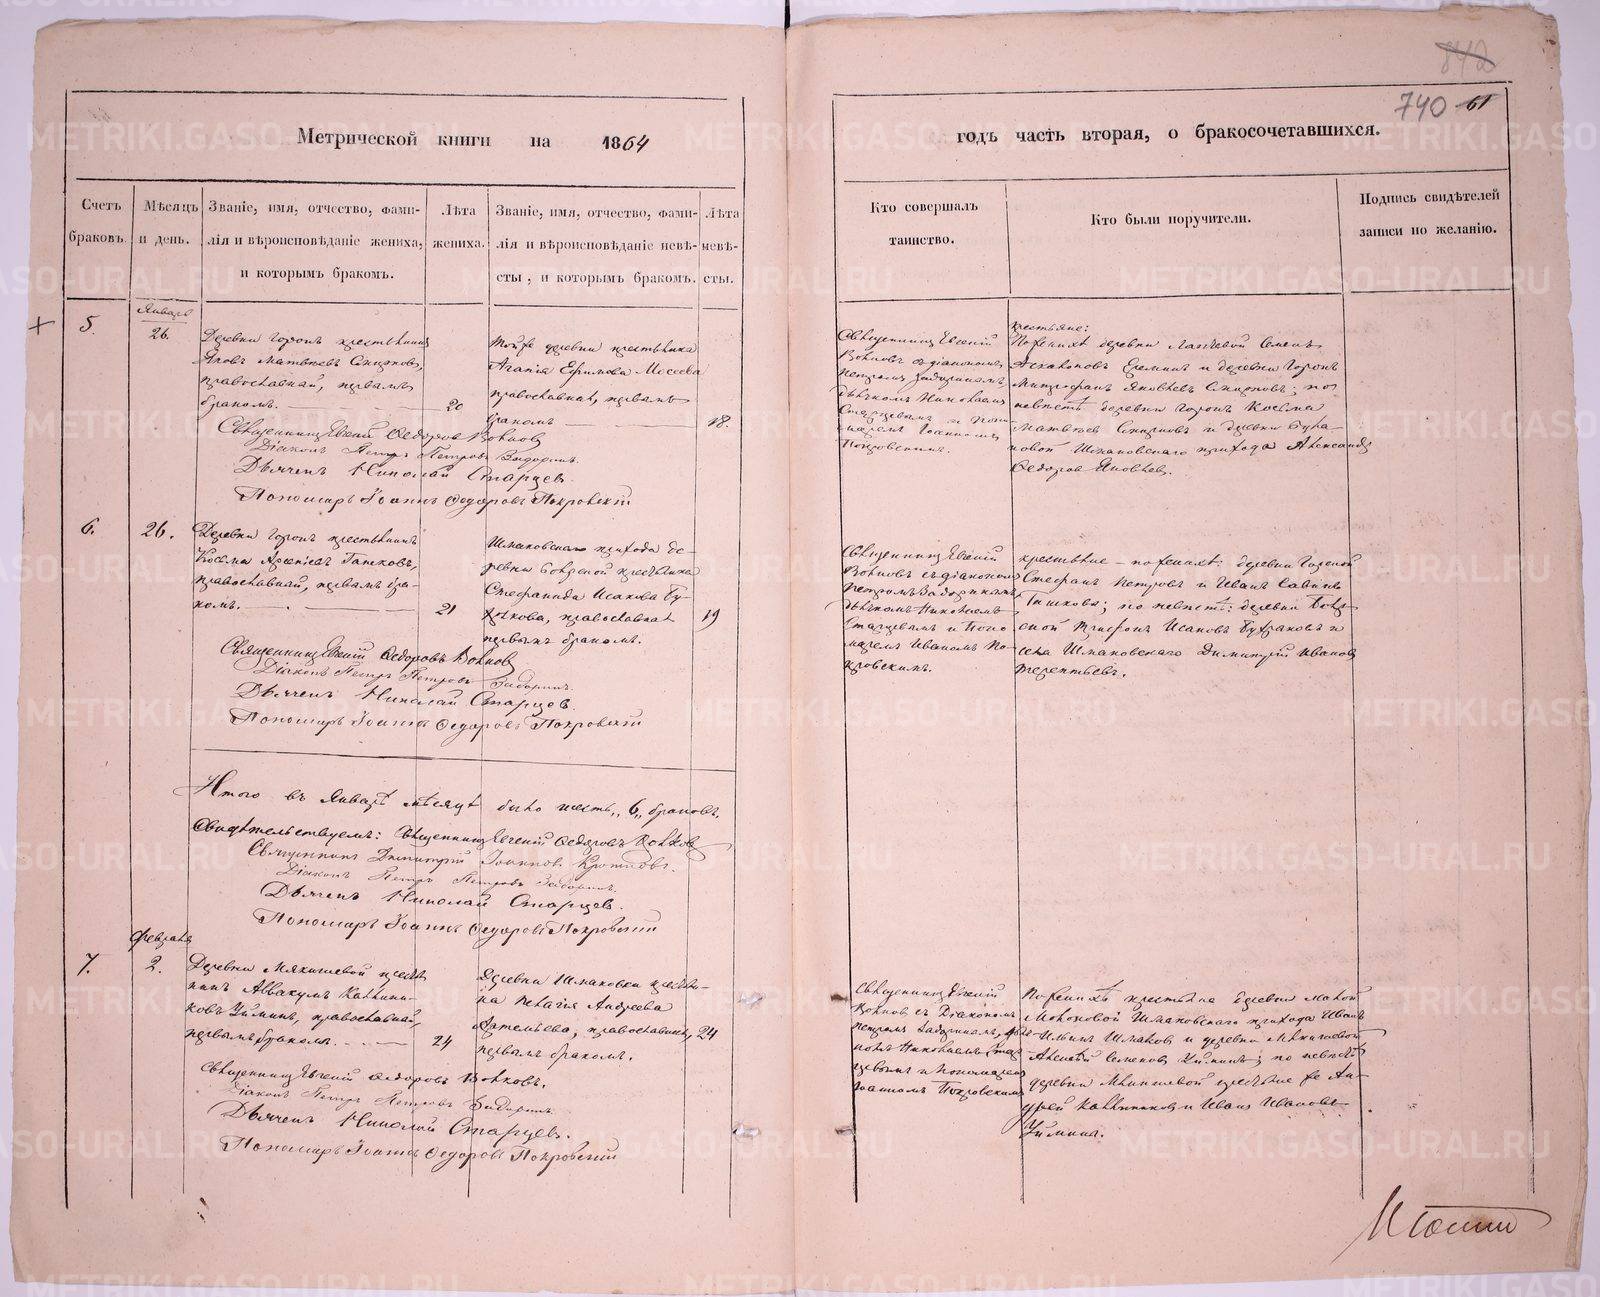 842
740 61
Метрической книги на 1864
годъ часть вторая, о бракосочетавшихся.
Счетъ браковъ.
Мѣсяцъ и день.
Званіе, имя, отчество, фами-
лія и вѣроисповѣданіе жениха,
и которымъ бракомъ.
Лѣта
жениха.
Званіе, имя, отчество, фами-
лія и вѣроисповѣданіе невѣ-
сты, и которымъ бракомъ.
Лѣта
невѣ-
сты.
Кто совершалъ
таинство.
Кто были поручители.
Подпись свидѣтелей
записи по желанію.
Январь
5.
26.
Деревни Горокъ крестьянинъ
Яковъ Матвѣевъ Смирновъ,
православный, первымъ
бракомъ.
20
Тойже деревни крестьянка
Агапія Ефимова Мосеева
православная, первымъ
бракомъ
18.
Священникъ Евгеній
Волковъ съ діакономъ
Петромъ Задоринымъ,
дьячкомъ Николаемъ
Старцевымъ и поно-
маремъ Іоанномъ
Покровскимъ.
крестьяне:
По женихѣ деревни
деревни Горокъ
Митрофанъ Яковлевъ Смирновъ; по
невѣстѣ деревни Горокъ Косьма
Матвѣевъ Смирновъ и деревни Бура-
новой Шмаковскаго прихода Александръ
Ѳедоровъ Яковлевъ.
Священникъ Евгеній Ѳедоровъ Волковъ
Діаконъ Петръ Петровъ Задоринъ.
Дьячекъ Николай Старцев.
Пономарь Іоаннъ Ѳедоровъ Покровскій
6.
26.
Деревни Горокъ крестьянинъ
Косьма Арсеніевъ Гашковъ,
православный, первымъ бра-
комъ.
21
Шмаковскаго прихода де-
ревни крестьянка
Стефанида Исакова Бу-
ракова, православная
первымъ бракомъ.
19
Священникъ Евгеній
Волковъ съ діакономъ
Петромъ Задоринымъ,
дьячкомъ Николаемъ
Старцевымъ и Поно-
маремъ Иваномъ По-
кровскимъ.
крестьяне – по женихѣ: деревни
Стефанъ Петровъ и Иванъ Савинъ
Гашковы; по невѣстѣ: деревни
Трифонъ Исаковъ Бураковъ и
села Шмаковскаго Димитрій Ивановъ
Терентьевъ.
Священникъ Евгеній Ѳедоровъ Волковъ
Діаконъ Петръ Петровъ Задоринъ.
Дьячекъ Николай Старцев.
Пономарь Іоаннъ Ѳедоровъ Покровскій
Итого въ Январѣ мѣсяцѣ было шесть „6„ браковъ.
Свидѣтельствуемъ: Священникъ Евгеній Ѳедоровъ Волковъ
Священникъ Димитрій Іоанновъ
Діаконъ Петръ Петровъ Задоринъ.
Дьячекъ Николай Старцев.
Пономарь Іоаннъ Ѳедоровъ Покровскій
Февраля
7.
2.
Деревни Мякишевой крестья-
нинъ Аввакумъ Каллини-
ковъ Уйминъ, православный,
первымъ бракомъ.
24
Деревни Шмаковки крестьян-
ка Пелагія Андреева
Артемьева, православная,
первымъ бракомъ.
24
Священникъ Евгеній
Волковъ съ Діакономъ
Петромъ Задоринымъ, дья-
комъ Николаемъ Стар-
цевымъ и Пономаремъ
Іоанномъ Покровскимъ
По женихѣ крестьяне деревни Малой
Шмаковскаго прихода Иванъ
Ильинъ Шмаковъ и деревни Мякишевой
Алексѣй Семеновъ Уйминъ; по невѣстѣ
деревни Мякишевой крестьяне же Ан-
дрей Каллиниковъ и Иванъ Ивановъ
Уймины.
Священникъ Евгеній Ѳедоровъ Волковъ.
Діаконъ Петръ Петровъ Задоринъ.
Дьячекъ Николай Старцевъ.
Пономарь Іоаннъ Ѳедоровъ Покровскій